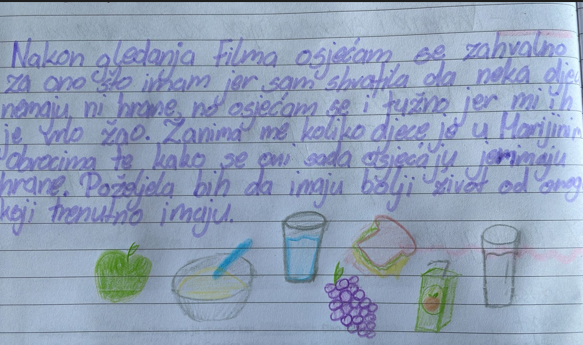 Nakon gledanja filma osjećam se zahvalno
za ono što imam jer sam shvatila da neka dje
nemaju ni hrane, no osjećam se i tužno jer mi ih
je vrlo žao. Zanima me koliko djece je u Marijinim
obrocima te kako se oni sada osjećaju jer imaju
hrane. Poželjela bih da imaju bolji život od onog
koji trenutno imaju.